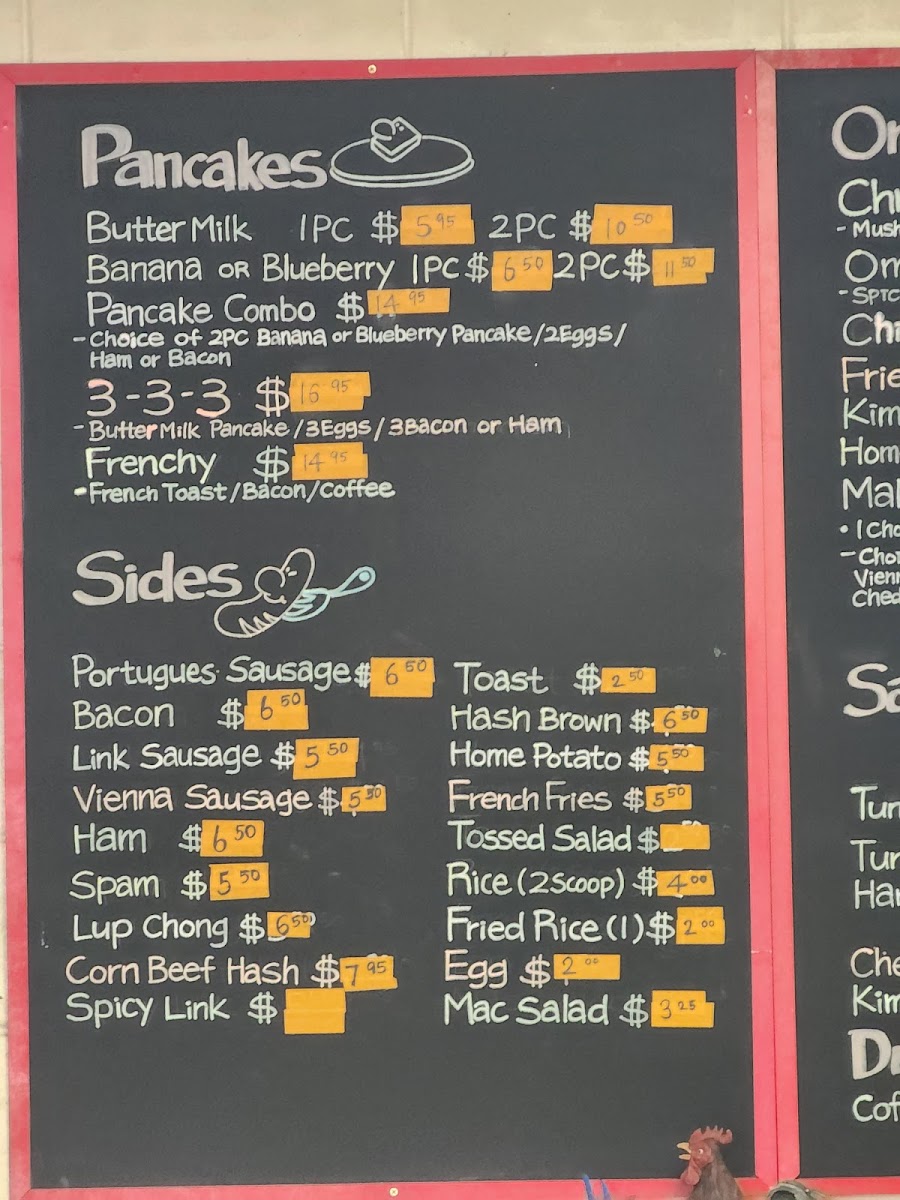 Pancakes
Butter Milk 1PC $ 5.95 2PC $ 10 50
Banana OR Blueberry 1PC $ 6 50 2PC $ 11 50
Pancake Combo $ 14 95
- Choice of 2PC Banana or Blueberry Pancake / 2Eggs /
Ham or Bacon
3-3-3 $ 16 95
- Butter Milk Pancake / 3Eggs / 3Bacon or Ham
Frenchy $ 14 95
• French Toast / Bacon / Coffee
Sides
Portugues Sausage $ 6 50
Bacon $ 6 50
Link Sausage $ 5 50
Vienna Sausage $ 5 50
Ham $ 6 50
Spam $ 5 50
Lup Chong $ 6 50
Corn Beef Hash $ 7 95
Spicy Link $
Toast $ 2 50
Hash Brown $ 6 50
Home Potato $ 5 50
French Fries $ 5 50
Tossed Salad $
Rice (2Scoop) $ 4 00
Fried Rice (1) $ 2 00
Egg $ 2 00
Mac Salad $ 3 25
Om
- SPTC
Kim
Hom
- Mush
Kim
Cof